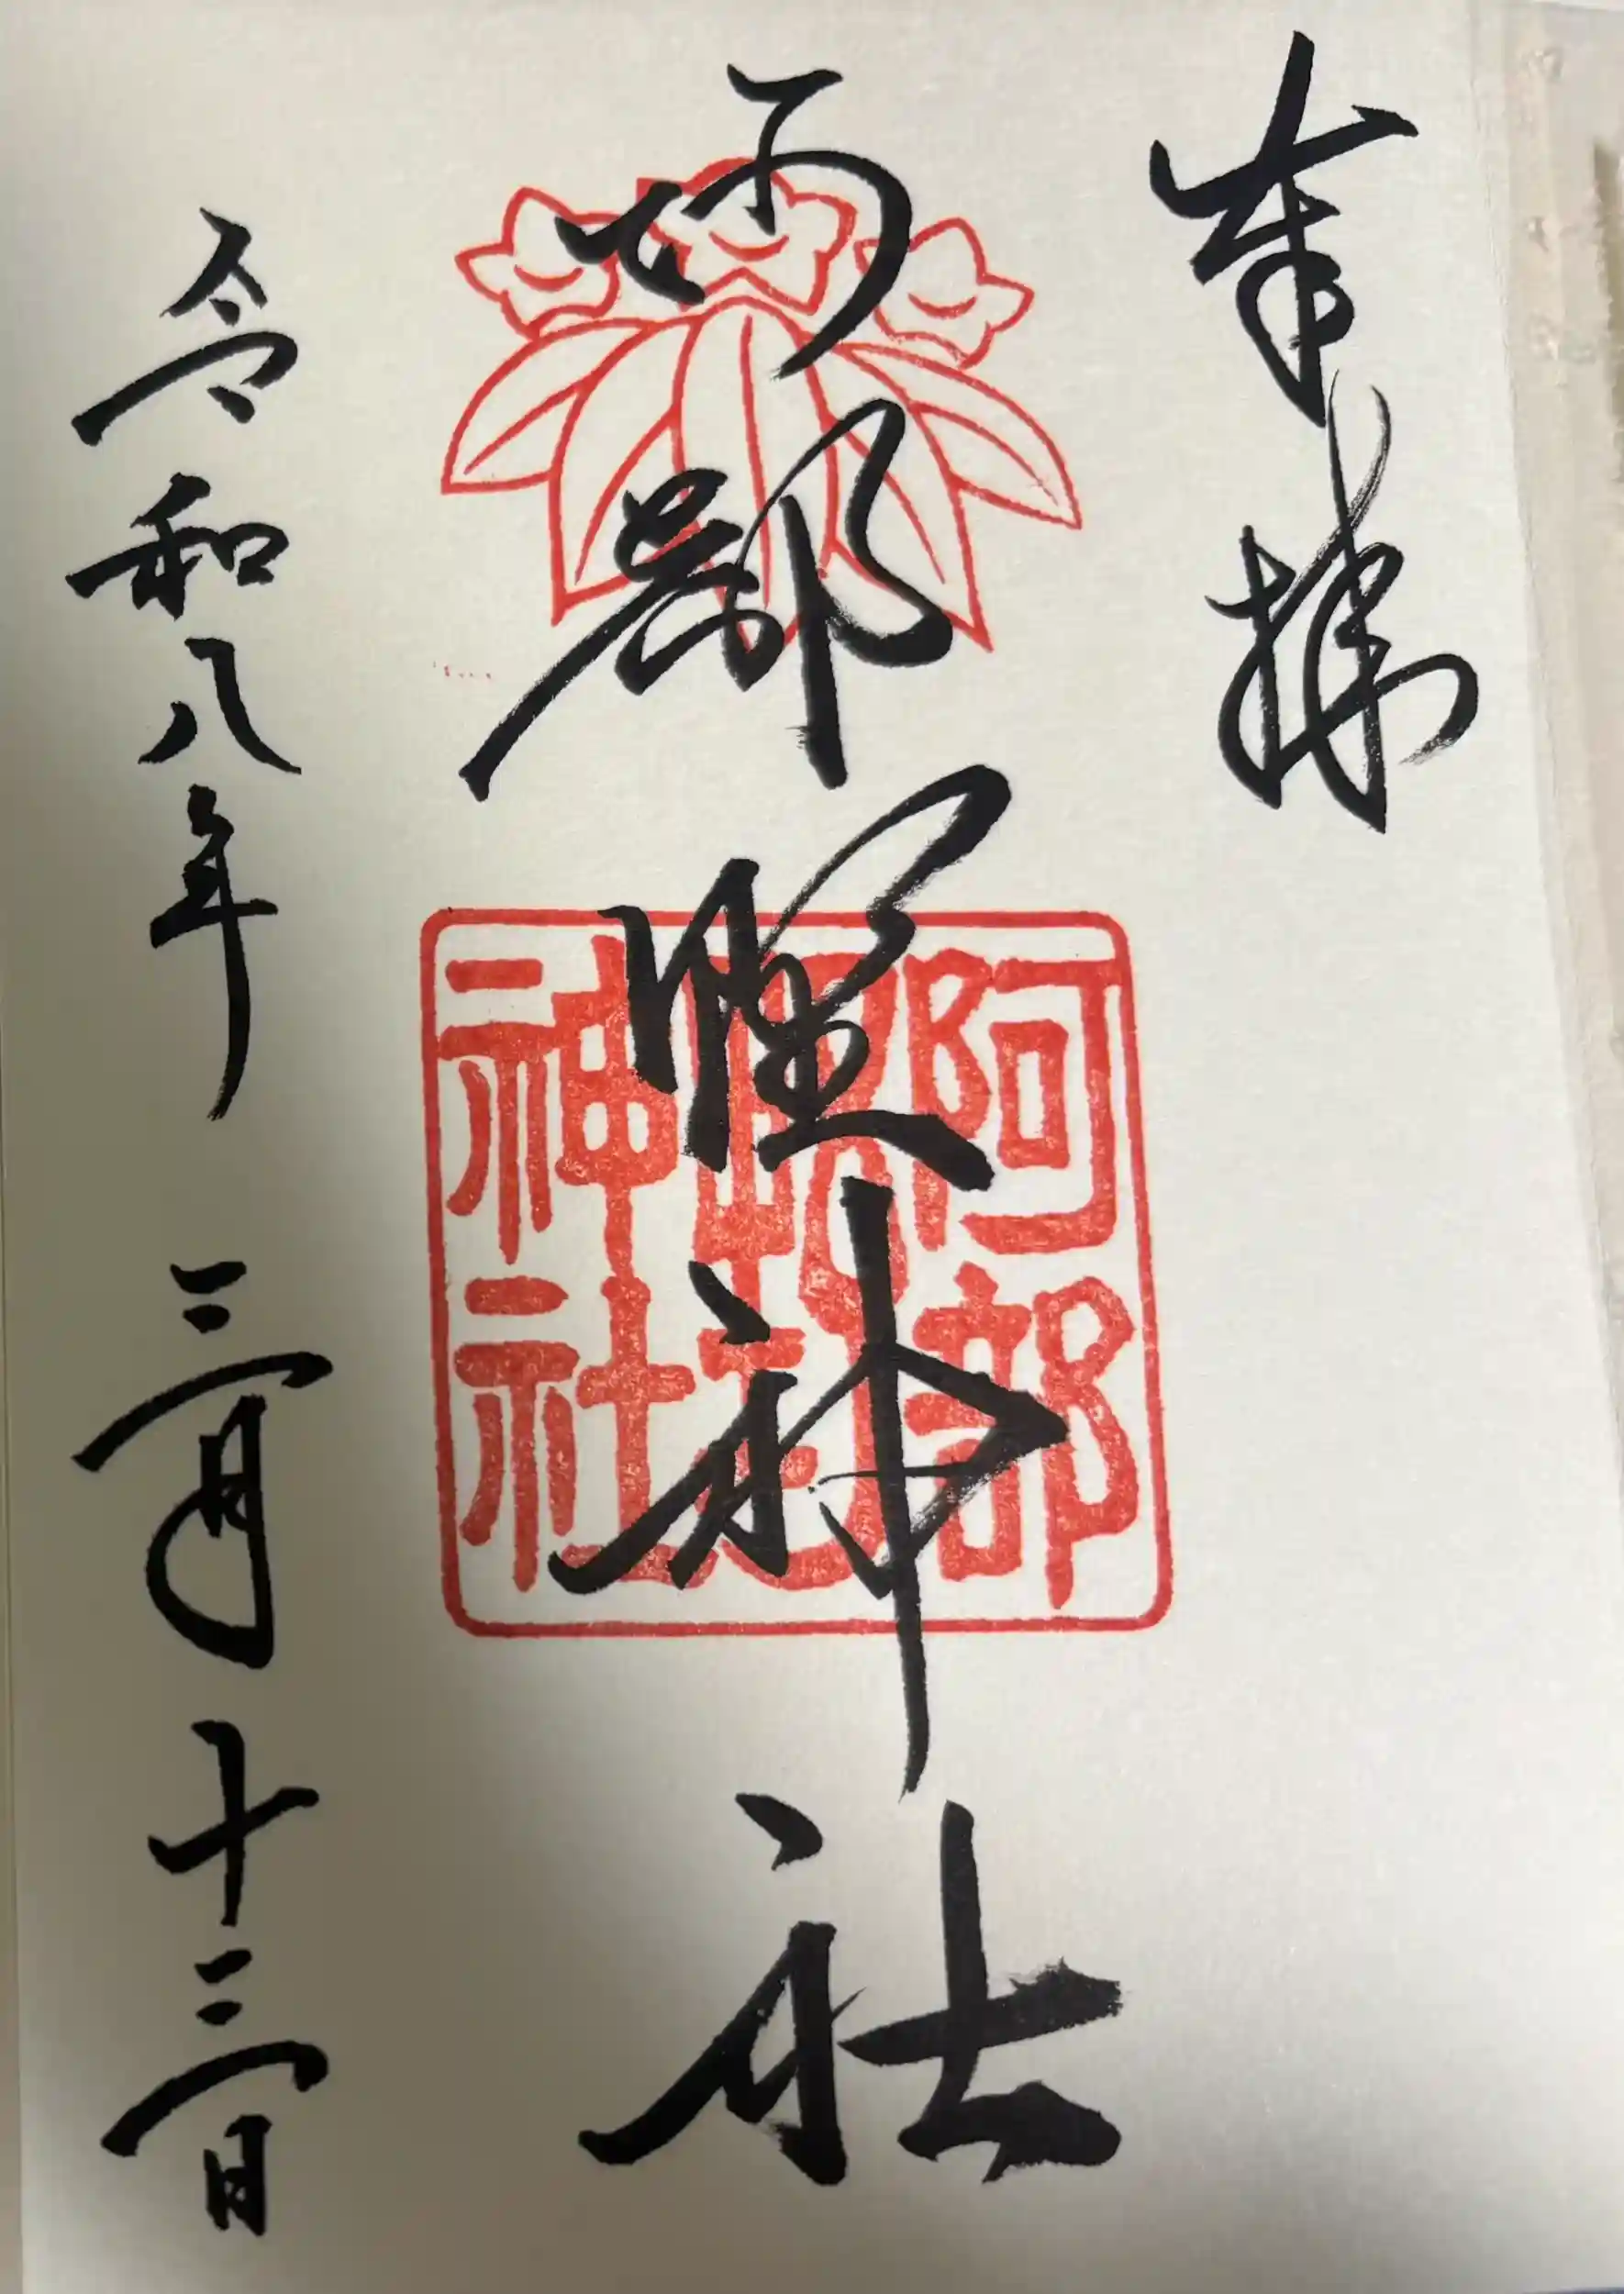 奉拝
阿部野神社
阿部
神社
令和八年三月十三日